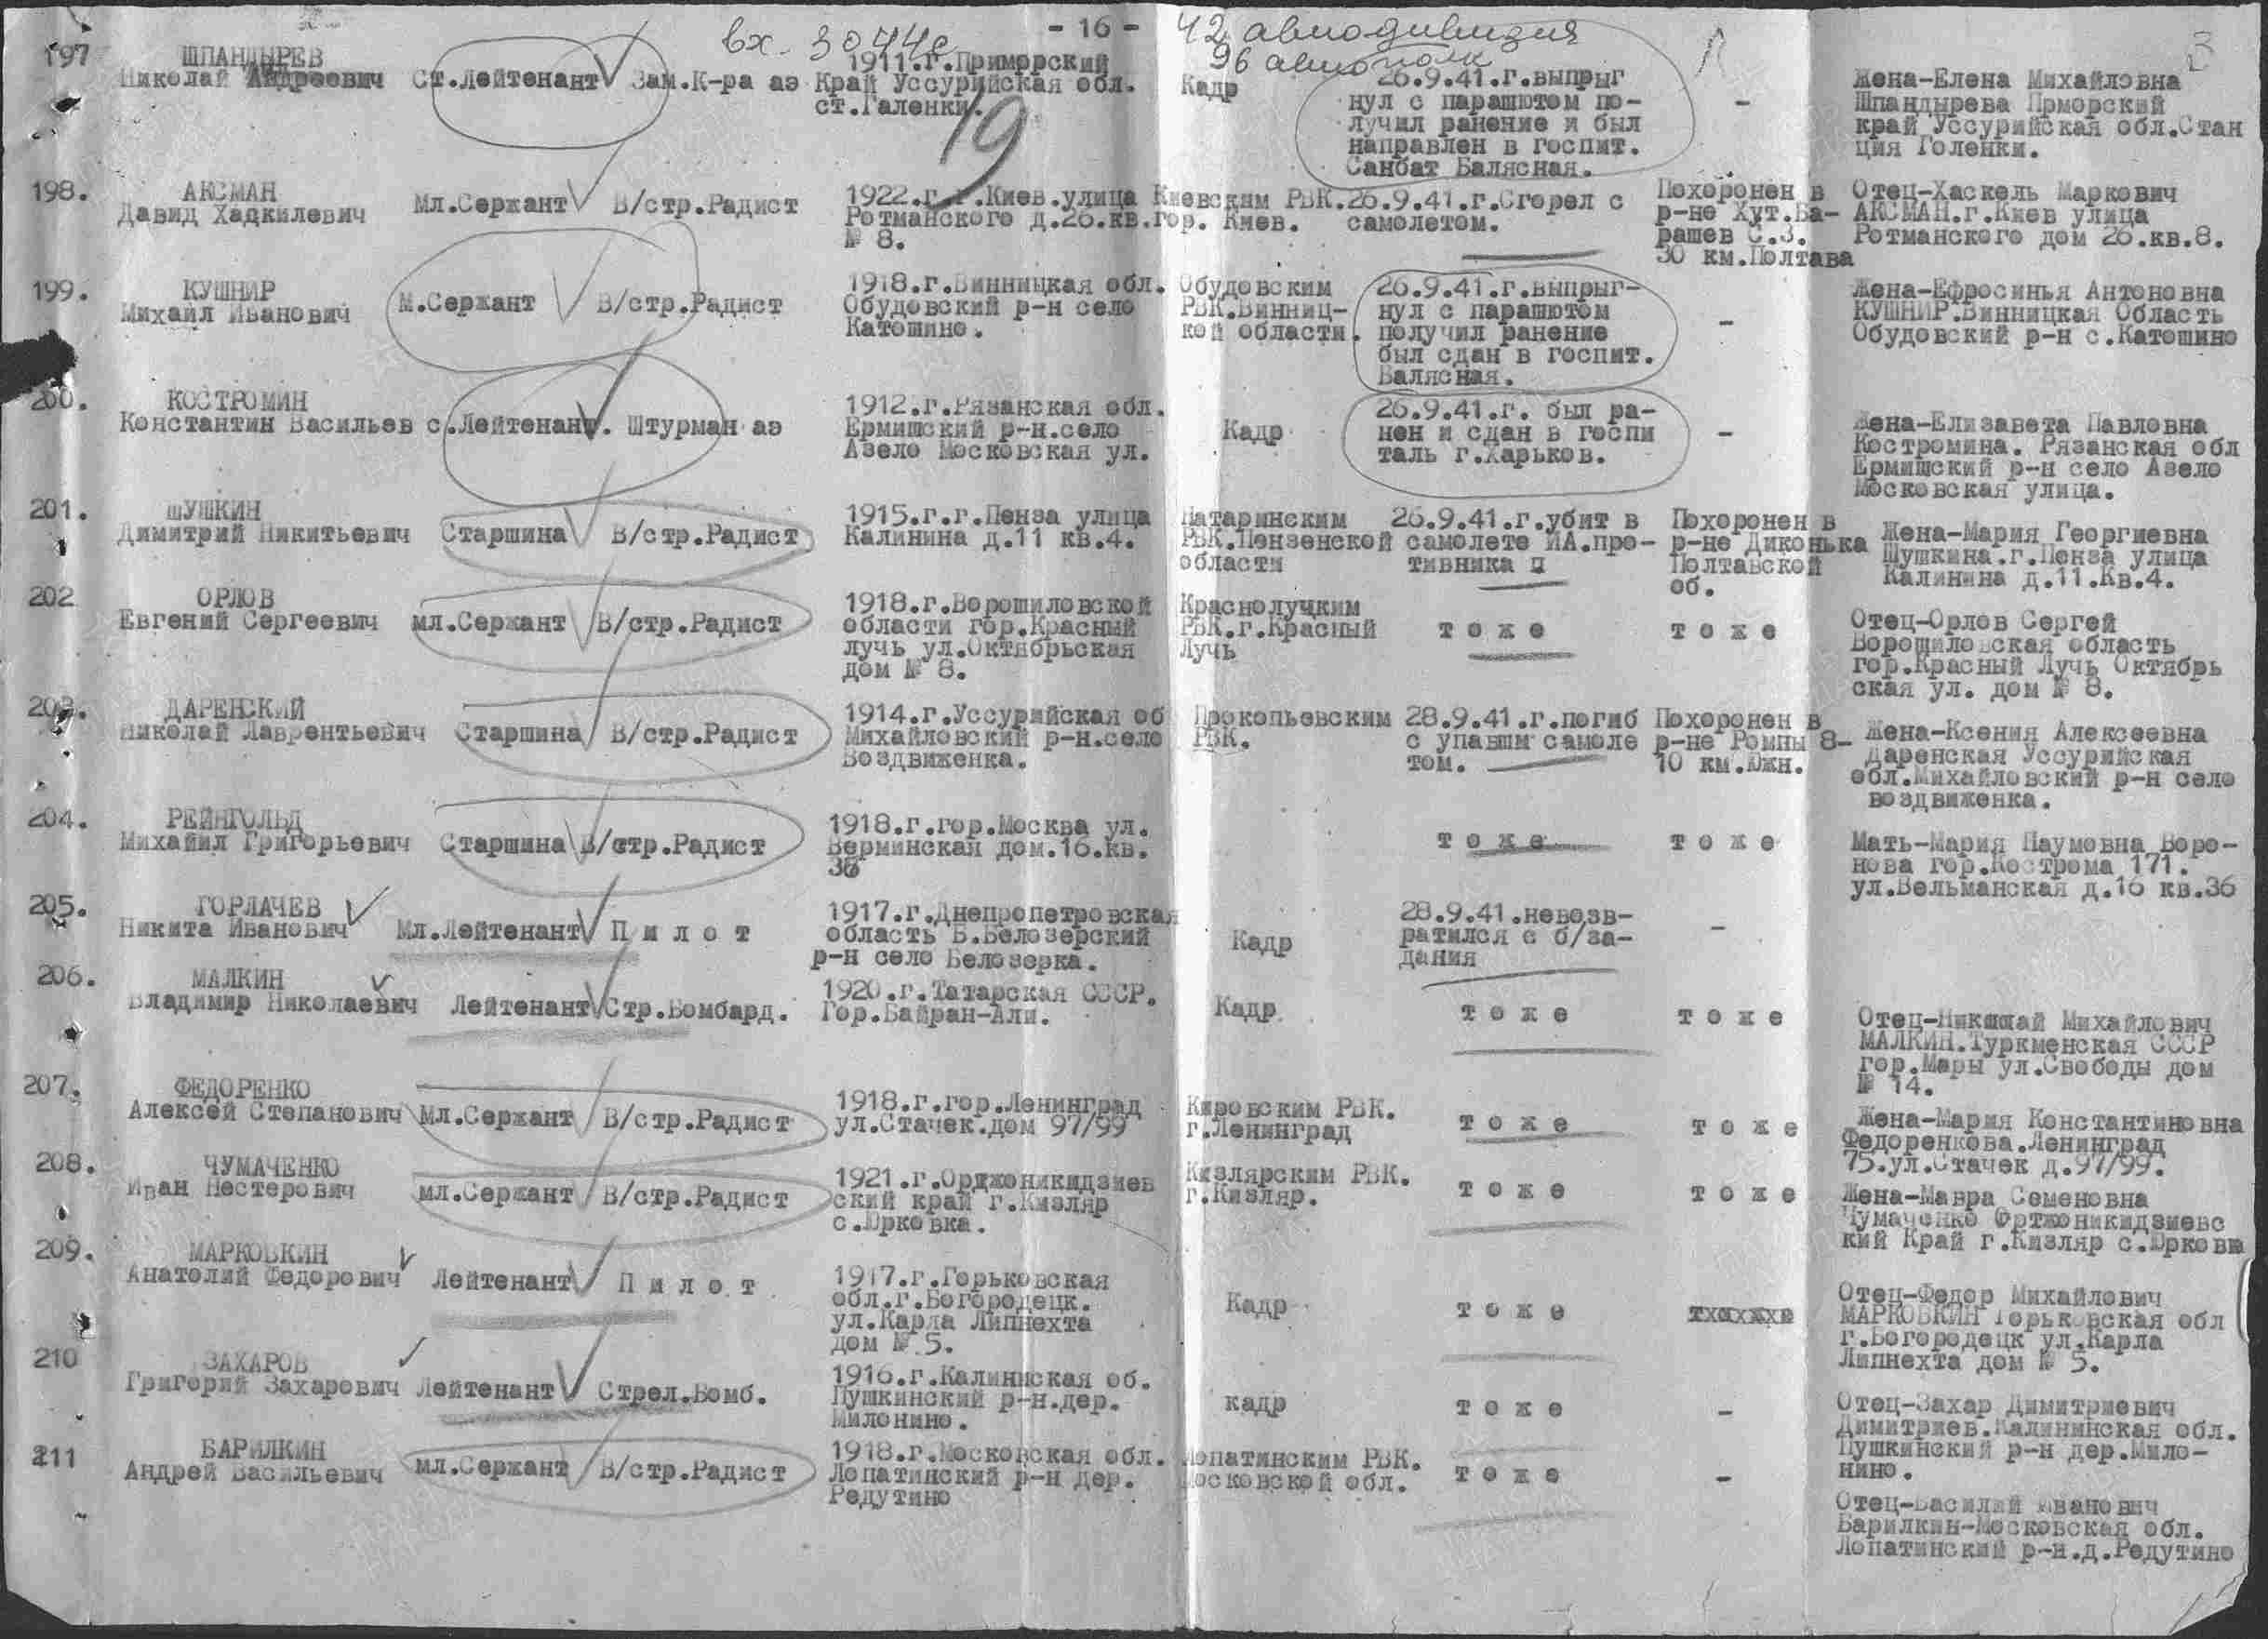 - 16 -
вх. 30442
42 авиодивизия
96 авиополк
19
197
ШПАНДЫРЕВ
Николай Андреевич
Ст.Лейтенант
Зам.К-ра аэ
1911.г.Приморский
Край Уссурийская обл.
ст.Галенки.
Кадр
26.9.41.г.выпрыг
нул с парашютом по-
лучил ранение и был
направлен в госпит.
Санбат Балясная.
-
Жена-Елена Михайловна
Шпандырева Прморский
край Уссурийская обл.Стан
ция Голенки.
198.
АКСМАН
Давид Хадкилевич
Мл.Сержант
В/стр.Радист
1922.г.г.Киев.улица
Ротманского д.26.кв.
№ 8.
Киевским РВК.
гор. Киев.
26.9.41.г.Сгорел с
самолетом.
Похоронен в
р-не Хут.Ба-
рашев С.З.
30 км.Полтава
Отец-Хаскель Маркович
АКСМАН.г.Киев улица
Ротманского дом 26.кв.8.
199.
КУШНИР
Михаил Иванович
М.Сержант
В/стр.Радист
1918.г.Винницкая обл.
Обудовский р-н село
Катошино.
Обудовским
РВК.Винниц-
кой области.
26.9.41.г.выпрыг-
нул с парашютом
получил ранение
был сдан в госпит.
Балясная.
-
Жена-Ефросинья Антоновна
КУШНИР.Винницкая Область
Обудовский р-н с.Катошино
200.
КОСТРОМИН
Константин Васильев
с.Лейтенант.
Штурман аэ
1912.г.Рязанская обл.
Ермишский р-н.село
Азело Московская ул.
Кадр
26.9.41.г. был ра-
нен и сдан в госпи
таль г.Харьков.
-
Жена-Елизавета Павловна
Костромина. Рязанская обл
Ермишский р-н село Азело
Московская улица.
201.
ШУШКИН
Димитрий Никитьевич
Старшина
В/стр.Радист
1915.г.г.Пенза улица
Калинина д.11 кв.4.
Татаринским
РВК.Пензенской
области
26.9.41.г.убит в
самолете ИА.про-
тивника
Похоронен в
р-не Диконька
Полтавской
об.
Жена-Мария Георгиевна
Шушкина.г.Пенза улица
Калинина д.11.Кв.4.
202
ОРЛОВ
Евгений Сергеевич
мл.Сержант
В/стр.Радист
1918.г.Ворошиловской
области гор.Красный
лучь ул.Октябрьская
дом № 8.
Краснолучким
РВК.г.Красный
Лучь
т о ж е
т о ж е
Отец-Орлов Сергей
Ворошиловская область
гор.Красный Лучь Октябрь
ская ул. дом № 8.
203.
ДАРЕНСКИЙ
Николай Лаврентьевич
Старшина
В/стр.Радист
1914.г.Уссурийская об
Михайловский р-н.село
Воздвиженка.
Прокопьевским
РВК.
28.9.41.г.погиб
с упавшим самоле
том.
Похоронен в
р-не Ромны 8-
10 км.Южн.
Жена-Ксения Алексеевна
Даренская Уссурийская
обл.Михайловский р-н село
воздвиженка.
204.
РЕЙНГОЛЬД
Михаийл Григорьевич
Старшина
В/стр.Радист
1918.г.гор.Москва ул.
Верминская дом.16.кв.
36
т о ж е
т о ж е
Мать-Мария Наумовна Воро-
нова гор.Кострома 171.
ул.Вельманская д.16 кв.36
205.
ГОРЛАЧЕВ
Никита Иванович
Мл.Лейтенант
П и л о т
1917.г.Днепропетровская
область Б.Белозерский
р-н село Белозерка.
Кадр
28.9.41.невозв-
ратился с б/за-
дания
-
206.
МАЛКИН
Владимир Николаевич
Лейтенант
Стр.Бомбард.
1920.г.Татарская СССР.
Гор.Байран-Али.
Кадр
т о ж е
т о ж е
Отец-Николай Михайлович
МАЛКИН.Туркменская СССР
гор.Мары ул.Свободы дом
№ 14.
207.
ФЕДОРЕНКО
Алексей Степанович
Мл.Сержант
В/стр.Радист
1918.г.гор.Ленинград
ул.Стачек.дом 97/99
Кировским РВК.
г.Ленинград
т о ж е
т о ж е
Жена-Мария Константиновна
Федоренкова.Ленинград
75.ул.Стачек д.97/99.
208.
ЧУМАЧЕНКО
Иван Нестерович
мл.Сержант
В/стр.Радист
1921.г.Орджоникидзиев
ский край г.Кизляр
с.Юрковка.
Кизлярским РВК.
г.Кизляр.
т о ж е
т о ж е
Жена-Мавра Семеновна
Чумаченко Ортжоникидзиевс
кий Край г.Кизляр с.Юрковк
209.
МАРКОВКИН
Анатолий Федорович
Лейтенант
П и л о т
1917.г.Горьковская
обл.г.Богородецк.
ул.Карла Липнехта
дом № 5.
Кадр
т о ж е
Отец-Федор Михайлович
МАРКОВКИН Горьковская обл
г.Богородецк ул.Карла
Липнехта дом № 5.
210
ЗАХАРОВ
Григорий Захарович
Лейтенант
Стрел.Бомб.
1916.г.Калининская об.
Пушкинский р-н.дер.
Милонино.
кадр
т о ж е
-
Отец-Захар Димитриевич
Димитриев.Калининская обл.
Пушкинский р-н дер.Мило-
нино.
211
БАРИЛКИН
Андрей Васильевич
мл.Сержант
В/стр.Радист
1918.г.Московская обл.
Лопатинский р-н дер.
Редутино
Лопатинским РВК.
Московской обл.
т о ж е
-
Отец-Василий Иванович
Барилкин-Московская обл.
Лопатинский р-н.д.Редутино